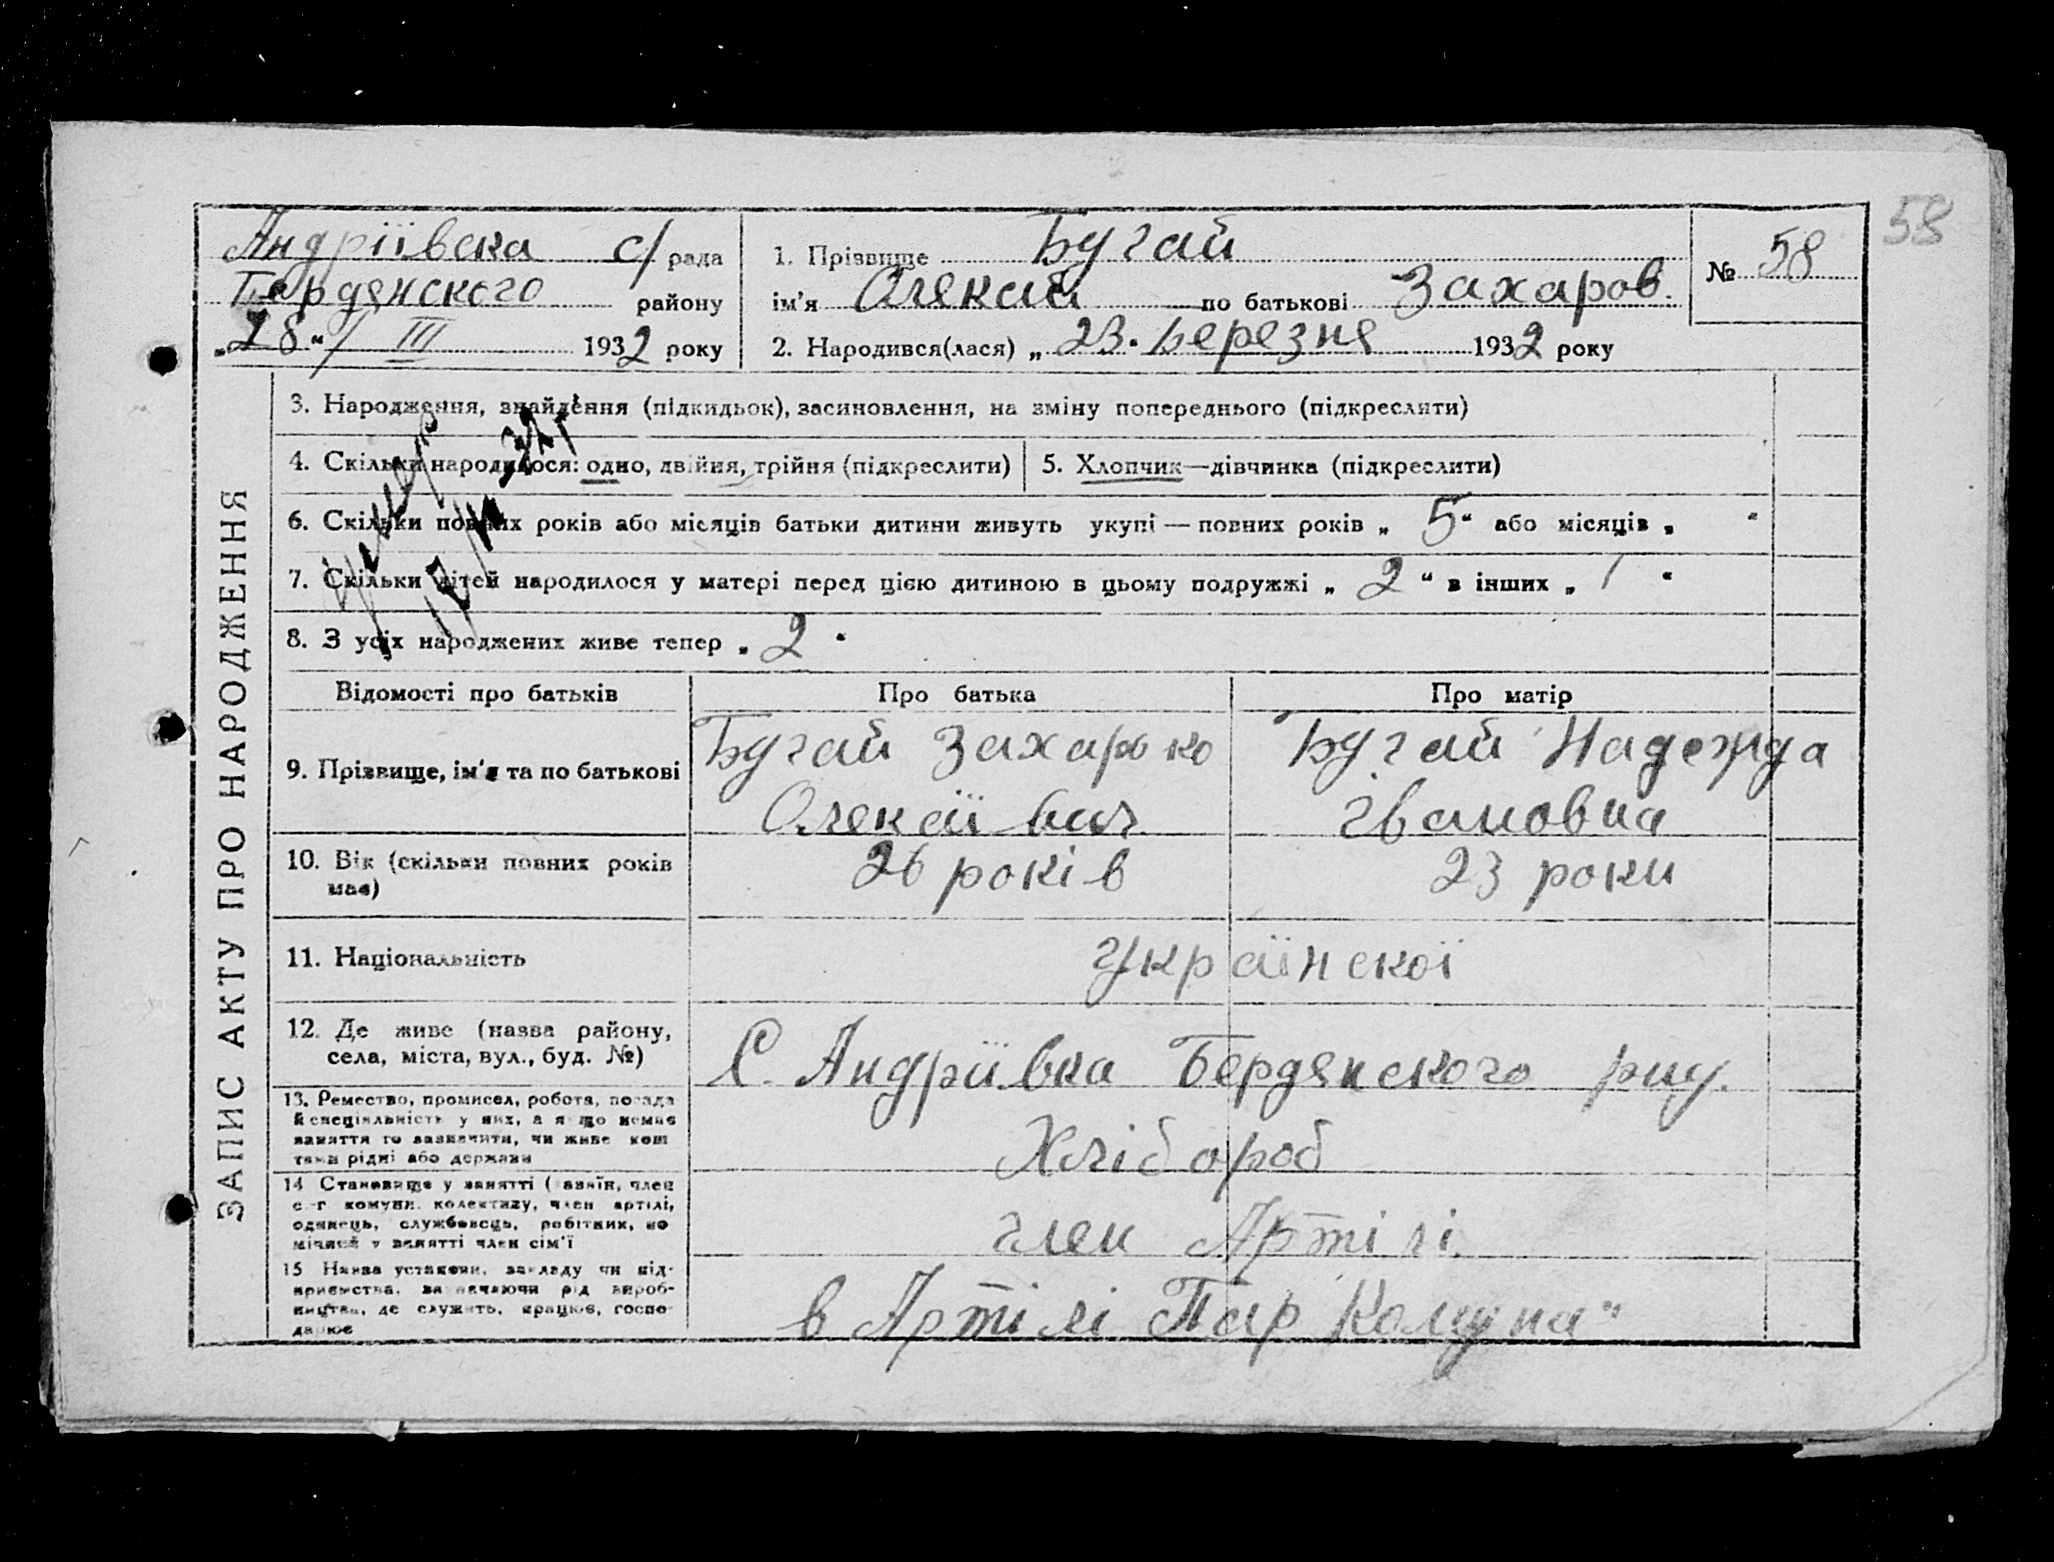 58
Андріївска с/ рада
Бердянского району
„28“/ III 1932 року
1. Прізвище Бугай
ім'я Олексій по батькові Захаров.
2. Народився(лася) „23. Березня 1932 року
№ 58
ЗАПИС АКТУ ПРО НАРОДЖЕННЯ
3. Народження, знайдення (підкидьок), засиновлення, на зміну попереднього (підкреслити)
4. Скільки народилося: одно, двійня, трійня (підкреслити)
5. Хлопчик—дівчинка (підкреслити)
6. Скільки повних років або місяців батьки дитини живуть укупі — повних років „ 5 “ або місяців „ “
7. Скільки дітей народилося у матері перед цією дитиною в цьому подружжі „ 2 “ в інших „ / “
8. З усіх народжених живе тепер „ 2 “
Умер
32 р
Відомості про батьків
Про батька
Про матір
9. Прізвище, ім'я та по батькові
Бугай Захарько
Олексіївич
Бугай Надежда
Івановна
10. Вік (скільки повних років
має)
26 років
23 роки
11. Національність
Українскої
12. Де живе (назва району,
села, міста, вул., буд. №)
С. Андріївка Бердянского рну.
13. Ремество, промисел, робота, посада
й спеціяльність у них, а якщо немає
заняття то зазначити, чи живе кош
тами рідні або держави
Хлібороб
14 Становище у занятті (хазяїн, член
с.-г комуни, колективу, член артілі,
одинець, службовець, робітник, по
мічний у занятті член сім'ї
член Артілі
15 Назва установи, закладу чи під-
приємства, зазначаючи рід вироб-
ництва, де служить, працює, госпо-
дарює
в Артілі Пар Комуна"